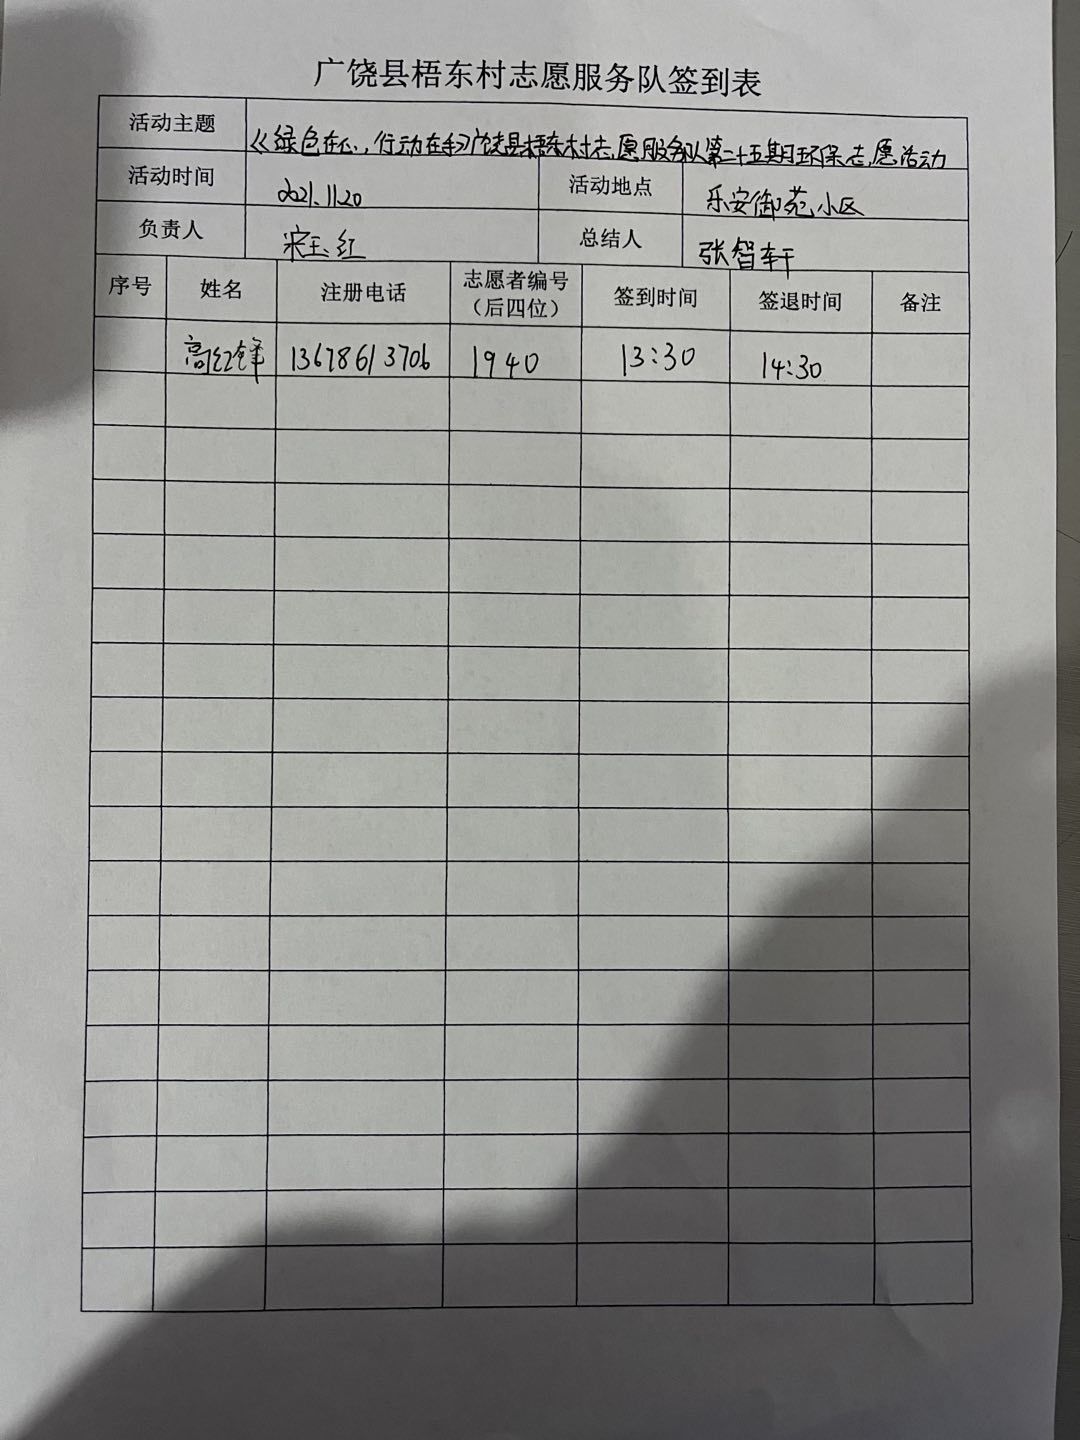 广饶县梧东村志愿服务队签到表
活动主题 《绿色在心,行动在手》广饶县梧东村志愿服务队第二十五期环保志愿活动
活动时间 2021.11.20 活动地点 乐安御苑小区
负责人 宋玉红 总结人 张智轩
序号 姓名 注册电话 志愿者编号 签到时间 签退时间 备注
(后四位)
高红锋 13678613706 1940 13:30 14:30